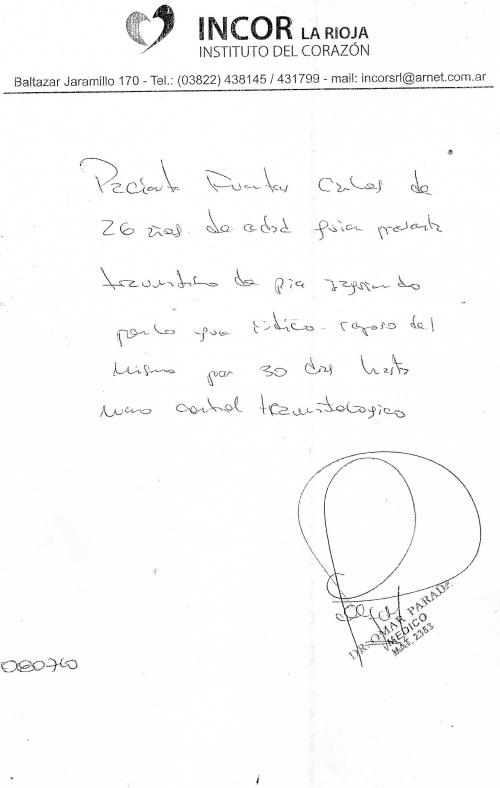 INCOR LA RIOJA
INSTITUTO DEL CORAZÓN
Baltazar Jaramillo 170 - Tel.: (03822) 438145 / 431799 - mail: incorsrl@arnet.com.ar
Paciente Fuentes Carlos de
26 años de edad quien presenta
traumatismo de pie izquierdo
por lo que indico reposo del
mismo por 30 dias hasta
nuevo control traumatologico
DR. OMAR PARADE
MEDICO
M.P. 2383
080740